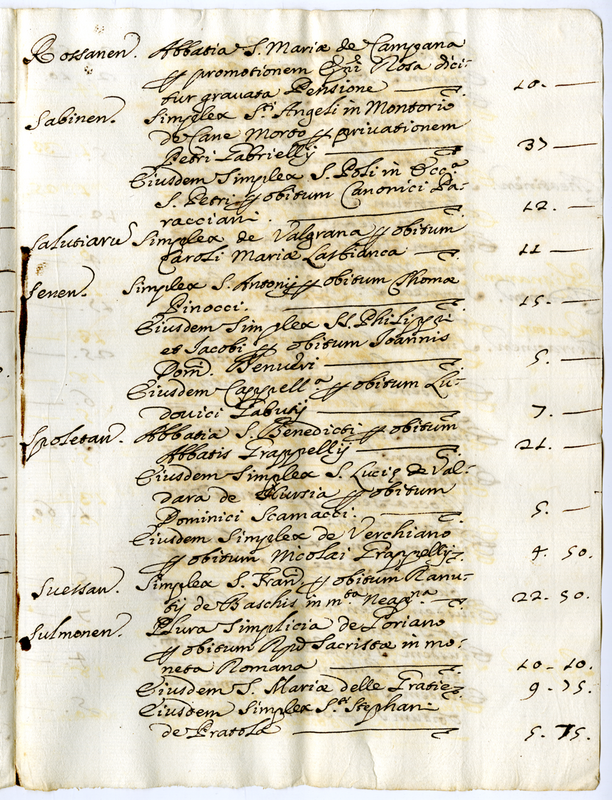 Rossanen. Abbatia S. Mariæ de Campana
promotionem Nosa dici-
tur gravata Pensione 10. —
Sabinen. Simplex S.ti Angeli in Montorio
de Cane Morto privationem
Petri Gabrielly 37 —
Eiusdem Simplex S. Poli in Ecc.a
S. Petri obitum Canonici Pa-
racciani. 12. —
Salutiaru Simplex de Valgrana obitum
Caroli Mariæ Lasbianca 11 —
Senen. Simplex S. Antonij obitum Thomæ
Pinocci 15. —
Eiusdem Simplex SS. Philippi
et Jacobi obitum Joannis
Dom. Benuldi 5. —
Eiusdem Cappell.a obitum Lu-
dovici 7. —
Spoletan. Abbatia S. Benedicti obitum
Abbatis Frappelly 21. —
Eiusdem Simplex S. Luciæ de Val-
dara de Nursia obitum
Dominici Scamacci. 5. —
Eiusdem Simplex de Verchiano
obitum Nicolai Frappelly 4. 50.
Suessan. Simplex S. Fran obitum Ranu-
tij de Baschis in m.ta Neap.na 22. 50.
Sulmonen. Plura Simplicia de Toriano
obitum Sacristæ in mo-
neta Romana 10. 10.
Eiusdem S. Mariæ delle Gratie 9. 75.
Eiusdem Simplex S.ti Stephani
de Pratola 5. 75.